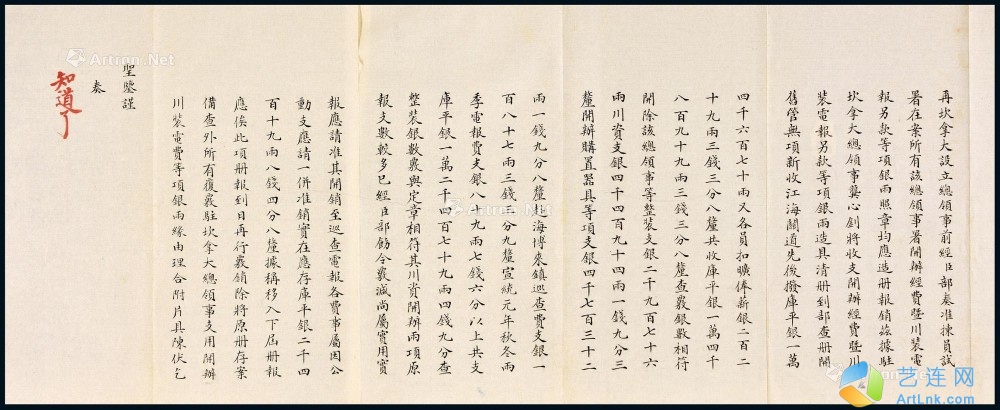 再坎拿大設立總領事前經臣部奏准揀員試
署在案所有該總領事署開辦經費暨川裝電
報另款等項銀兩照章均應造册報銷茲據駐
坎拿大總領事龔心釗將收支開辦經費暨川
裝電報另款等項銀兩造具清册到部查册開
舊管無項新收江海關道先後撥庫平銀一萬
四千六百七十兩又各員扣曠俸薪銀二百二
十九兩三錢三分八釐共收庫平銀一萬四千
八百九十九兩三錢三分八釐查覈銀數相符
開除該總領事等整裝支銀二千九百七十六
兩川資支銀四千四百九十四兩一錢九分三
釐開辦購置器具等項支銀四千七百三十二
兩一錢九分八釐赴海博來鎮巡查費支銀一
百八十七兩三錢三分九釐宣統元年秋冬兩
季電報費支銀八十九兩七錢六分以上共支
庫平銀一萬二千四百七十九兩四錢九分查
整裝銀數覈與定章相符其川資開辦兩項原
報支數較多已經臣部飭令覈減尚屬實用實
報應請准其開銷至巡查電報各費事屬因公
動支應請一併准銷實在應存庫平銀二千四
百十九兩八錢四分八釐據稱移入下屆册報
應俟此項册報到日再行覈銷除將原册存案
備查外所有覆覈駐坎拿大總領事支用開辦
川裝電費等項銀兩緣由理合附片具陳伏乞
聖鑒謹
奏
知道了
Artron.Net
Artron.Net
艺连网
ArtLnk.com